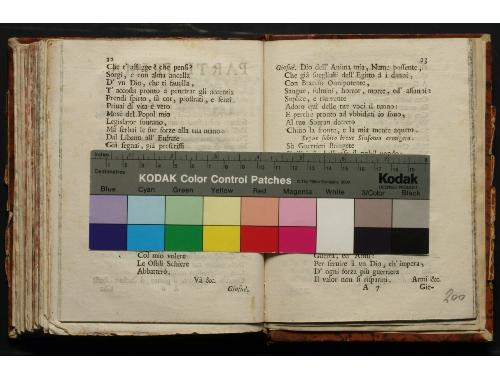 22
Che t'affligge? che pensi?
Sorgi, e con alma ancella
D' vn Dio, che ti fauella,
T' accosti pronto a penetrar gli accenti
Prendi spirto, sù cor, prostrati, e senti.
Priui di vita è vero.
Mosè del Popol mio
Legislator sourano,
Mà serbai le sue forze alla tua mano
Dal Libano all' Eufrate
Già segnai, già prescrissi
Col mio volere
Le Ostili Schiere
Abbatterò.
Và &c.
Giosuè.
23
Giosuè. Dio dell' Anima mia, Nume possente,
Che già sciogliesti dell' Egitto à i danni,
Con Braccio Onnipotente,
Sangue, fulmini, horror, morte, ed' affanni:
Suplice, e riuerente
Adoro qui delle tue voci il tuono:
E perche pronto ad vbbidari io sono,
Al tuo Souran decreto
Chino la fronte, e la mia mente acqueto.
Segue subito breue Sinfonia armigera.
Sù Guerrieri Stringete
Guerra, ed Armi?
Per seruire à vn Dio, ch' impera,
D' ogni forza più guerriera
Il valor non si risparmi.
Armi &c.
A 7
Gie-
200
Inches
Centimetres
KODAK Color Control Patches
Kodak
LICENSED PRODUCT
Blue
Cyan
Green
Yellow
Red
Magenta
White
3/Color
Black